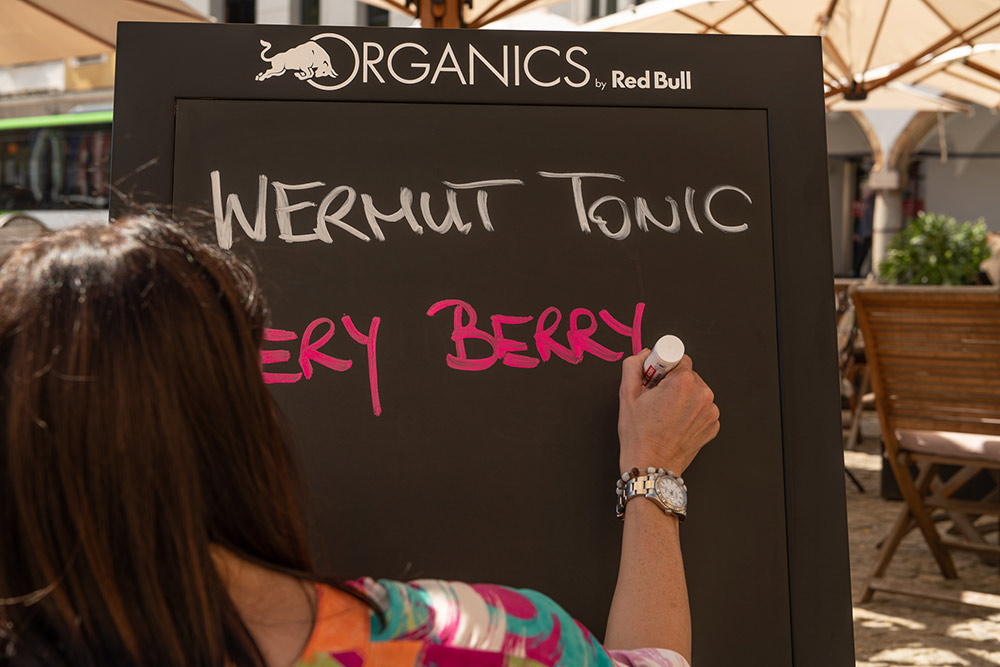 ORGANICS by Red Bull
WERMUT TONIC
ERY BERRY